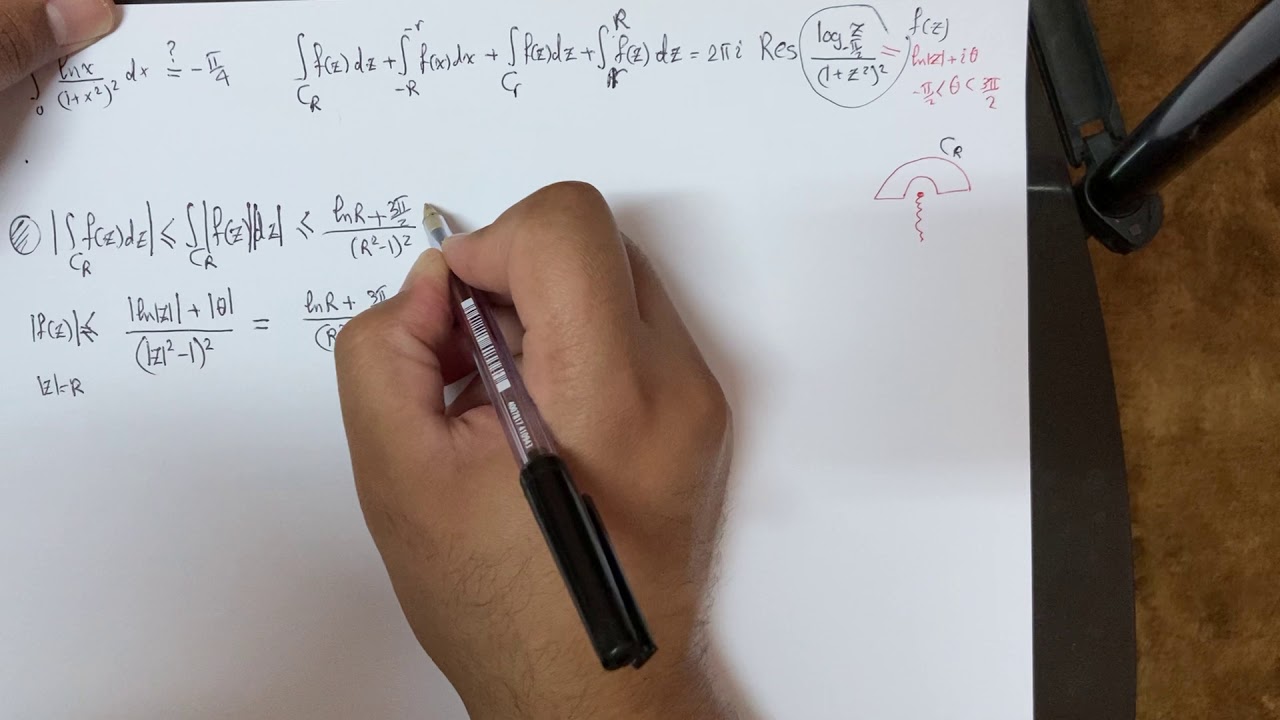 ∫₀ ln x/(1+x²)² dx ?= -π/4
∫_{C_R} f(z) dz + ∫_{-R}^{-r} f(x) dx + ∫_{C_r} f(z) dz + ∫_r^R f(z) dz = 2πi Res log_{-π/2} z/(1+z²)² = f(z)
ln|z| + iθ
-π/2 < θ < 3π/2
C_R
|∫_{C_R} f(z) dz| ≤ ∫_{C_R} |f(z)||dz| ≤ (ln R + 3π/2)/(R²-1)²
|f(z)| ≤ (|ln|z|| + |θ|)/(|z|²-1)² = ln R + 3π
|z|=R